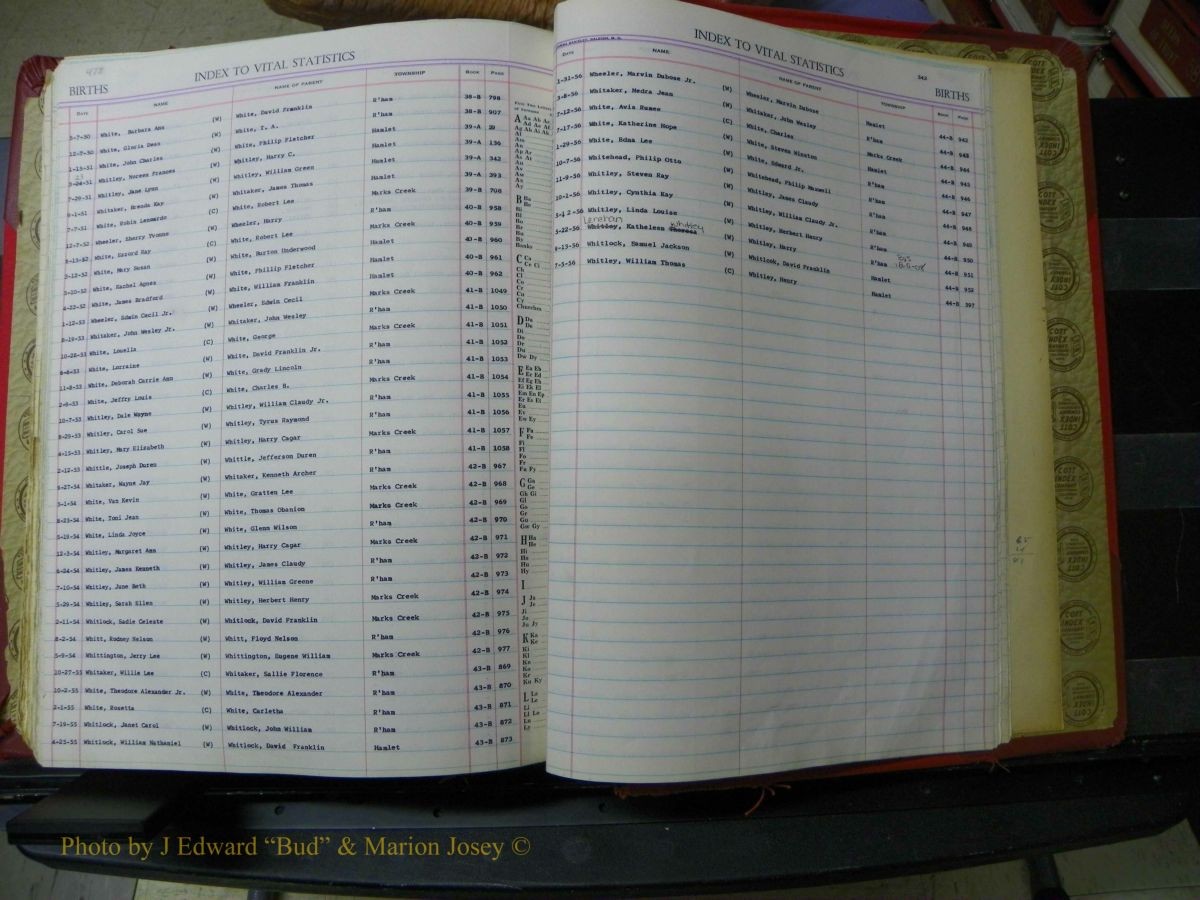 478
INDEX TO VITAL STATISTICS
BIRTHS
NAME NAME OF PARENT TOWNSHIP BOOK PAGE
5-7-50 White, Barbara Ann (W) White, David Franklin R'ham 38-B 798
12-7-50 White, Gloria Dean (W) White, T. A. R'ham 38-B 907
1-13-51 White, John Charles (W) White, Philip Fletcher Hamlet 39-A 29
3-24-51 Whitley, Noreen Frances (W) Whitley, Harry C. Hamlet 39-A 136
7-29-51 Whitley, Jane Lynn (W) Whitley, William Green Hamlet 39-A 342
9-1-51 Whitaker, Brenda Kay (W) Whitaker, James Thomas Hamlet 39-A 393
7-7-51 White, Robin Lennardo (C) White, Robert Lee Marks Creek 39-B 708
12-7-52 Wheeler, Sherry Yvonne (W) Wheeler, Harry R'ham 40-B 958
5-13-52 White, Ezzord Ray (C) White, Robert Lee Marks Creek 40-B 959
3-12-52 White, Mary Susan (W) White, Burton Underwood Hamlet 40-B 960
3-10-52 White, Rachel Agnes (W) White, Phillip Fletcher Hamlet 40-B 961
4-22-52 White, James Bradford (W) White, William Franklin Hamlet 40-B 962
1-12-53 Wheeler, Edwin Cecil Jr. (W) Wheeler, Edwin Cecil Marks Creek 41-B 1049
8-19-53 Whitaker, John Wesley Jr. (W) Whitaker, John Wesley R'ham 41-B 1050
10-28-53 White, Louella (C) White, George Marks Creek 41-B 1051
6-6-53 White, Lorraine (W) White, David Franklin Jr. R'ham 41-B 1052
11-8-53 White, Deborah Carrie Ann (W) White, Grady Lincoln R'ham 41-B 1053
2-8-53 White, Jeffry Louis (C) White, Charles S. Marks Creek 41-B 1054
10-7-53 Whitley, Dale Wayne (W) Whitley, William Claudy Jr. R'ham 41-B 1055
8-29-53 Whitley, Carol Sue (W) Whitley, Tyrus Raymond R'ham 41-B 1056
4-15-53 Whitley, Mary Elizabeth (W) Whitley, Harry Cagar Marks Creek 41-B 1057
2-12-53 Whittle, Joseph Duren (W) Whittle, Jefferson Duren R'ham 41-B 1058
5-27-54 Whitaker, Wayne Jay (W) Whitaker, Kenneth Archer R'ham 42-B 967
3-1-54 White, Van Kevin (W) White, Gratten Lee Marks Creek 42-B 968
8-23-54 White, Toni Jean (W) White, Thomas Obanion Marks Creek 42-B 969
5-19-54 White, Linda Joyce (W) White, Glenn Wilson R'ham 42-B 970
12-3-54 Whitley, Margaret Ann (W) Whitley, Harry Cagar Marks Creek 42-B 971
6-24-54 Whitley, James Kenneth (W) Whitley, James Claudy R'ham 42-B 972
7-10-54 Whitley, June Beth (W) Whitley, William Greene R'ham 42-B 973
5-29-54 Whitley, Sarah Ellen (W) Whitley, Herbert Henry Marks Creek 42-B 974
2-11-54 Whitlock, Sadie Celeste (W) Whitlock, David Franklin Marks Creek 42-B 975
8-2-54 Whitt, Rodney Nelson (W) Whitt, Floyd Nelson R'ham 42-B 976
5-9-54 Whittington, Jerry Lee (W) Whittington, Eugene William Marks Creek 42-B 977
10-27-55 Whitaker, Willie Lee (C) Whitaker, Sallie Florence R'ham 43-B 869
10-2-55 White, Theodore Alexander Jr. (W) White, Theodore Alexander R'ham 43-B 870
2-1-55 White, Rosetta (C) White, Carletha R'ham 43-B 871
7-19-55 Whitlock, Janet Carol (W) Whitlock, John William R'ham 43-B 872
4-25-55 Whitlock, William Nathaniel (W) Whitlock, David Franklin Hamlet 43-B 873
INDEX TO VITAL STATISTICS
343
BIRTHS
DATE NAME NAME OF PARENT TOWNSHIP BOOK PAGE
1-31-56 Wheeler, Marvin Dubose Jr. (W) Wheeler, Marvin Dubose Hamlet 44-B 942
3-8-56 Whitaker, Medra Jean (W) Whitaker, John Wesley R'ham 44-B 943
7-12-56 White, Avis Rumee (C) White, Charles Marks Creek 44-B 944
7-17-56 White, Katherine Hope (W) White, Steven Winston Hamlet 44-B 945
1-29-56 White, Edna Lee (C) White, Edward Jr. R'ham 44-B 946
10-7-56 Whitehead, Philip Otto (W) Whitehead, Philip Maxwell R'ham 44-B 947
11-9-56 Whitley, Steven Ray (W) Whitley, James Claudy R'ham 44-B 948
10-1-56 Whitley, Cynthia Kay (W) Whitley, William Claudy Jr. R'ham 44-B 949
5-12-56 Whitley, Linda Louise (W) Whitley, Herbert Henry R'ham 44-B 950
Whitley
5-22-56 Whitley, Kathelena Theresa (W) Whitley, Harry R'ham 44-B 951
9-13-56 Whitlock, Samuel Jackson (W) Whitlock, David Franklin Hamlet 44-B 952
7-5-56 Whitley, William Thomas (C) Whitley, Henry Hamlet 44-B 397
COTT INDEX COMPANY
Photo by J Edward “Bud” & Marion Josey ©